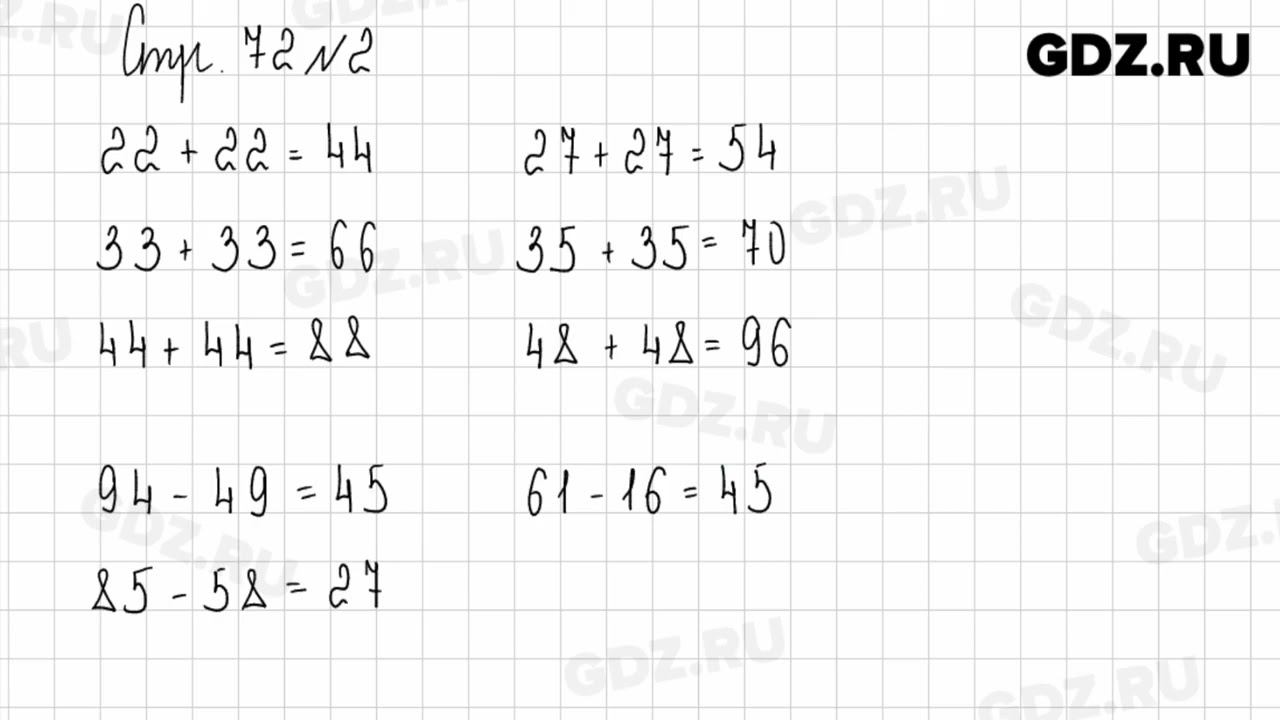 Стр. 72 № 2
GDZ.RU
22 + 22 = 44 27 + 27 = 54
33 + 33 = 66 35 + 35 = 70
44 + 44 = 88 48 + 48 = 96
94 - 49 = 45 61 - 16 = 45
85 - 58 = 27